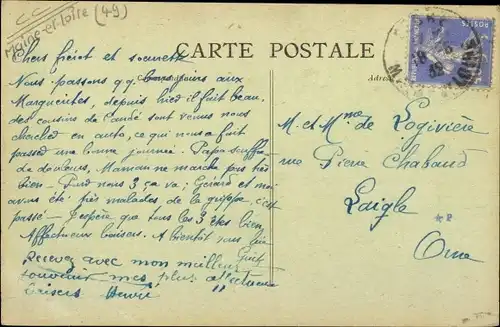 Maine-et-Loire (49)
CARTE POSTALE
Chers frérot et soeurette
Nous passons qq. jours aux
Marguerites, depuis hier il fait beau.
des cousins de Candé sont venus nous
chercher en auto, ce qui nous a fait
passer une bonne journée. Papa souffre
de douleurs, Maman ne marche pas très
bien - nous 3 ça va; Gérard et moi
avons été très malades de la grippe, c'est
passé - J'espère que tous les 3 êtes bien
Affectueux baisers. A bientôt vous lire
Guit
Recevez avec mon meilleur
souvenir mes plus affectueux
baisers Henri
POSTES
M. et Mme de Logivière
rue Pierre Chabaud
Laigle
Orne